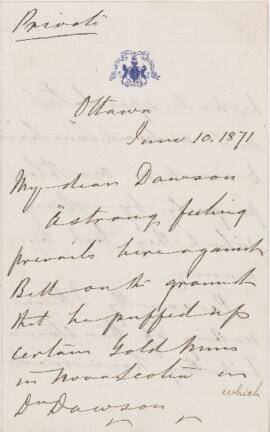 Private
Ottawa
June 10. 1871
My dear Dawson
A strong feeling
prevails here against
Bell on the ground
that he puffed up
certain Gold mines
in Nova Scotia in
which
Dr Dawson